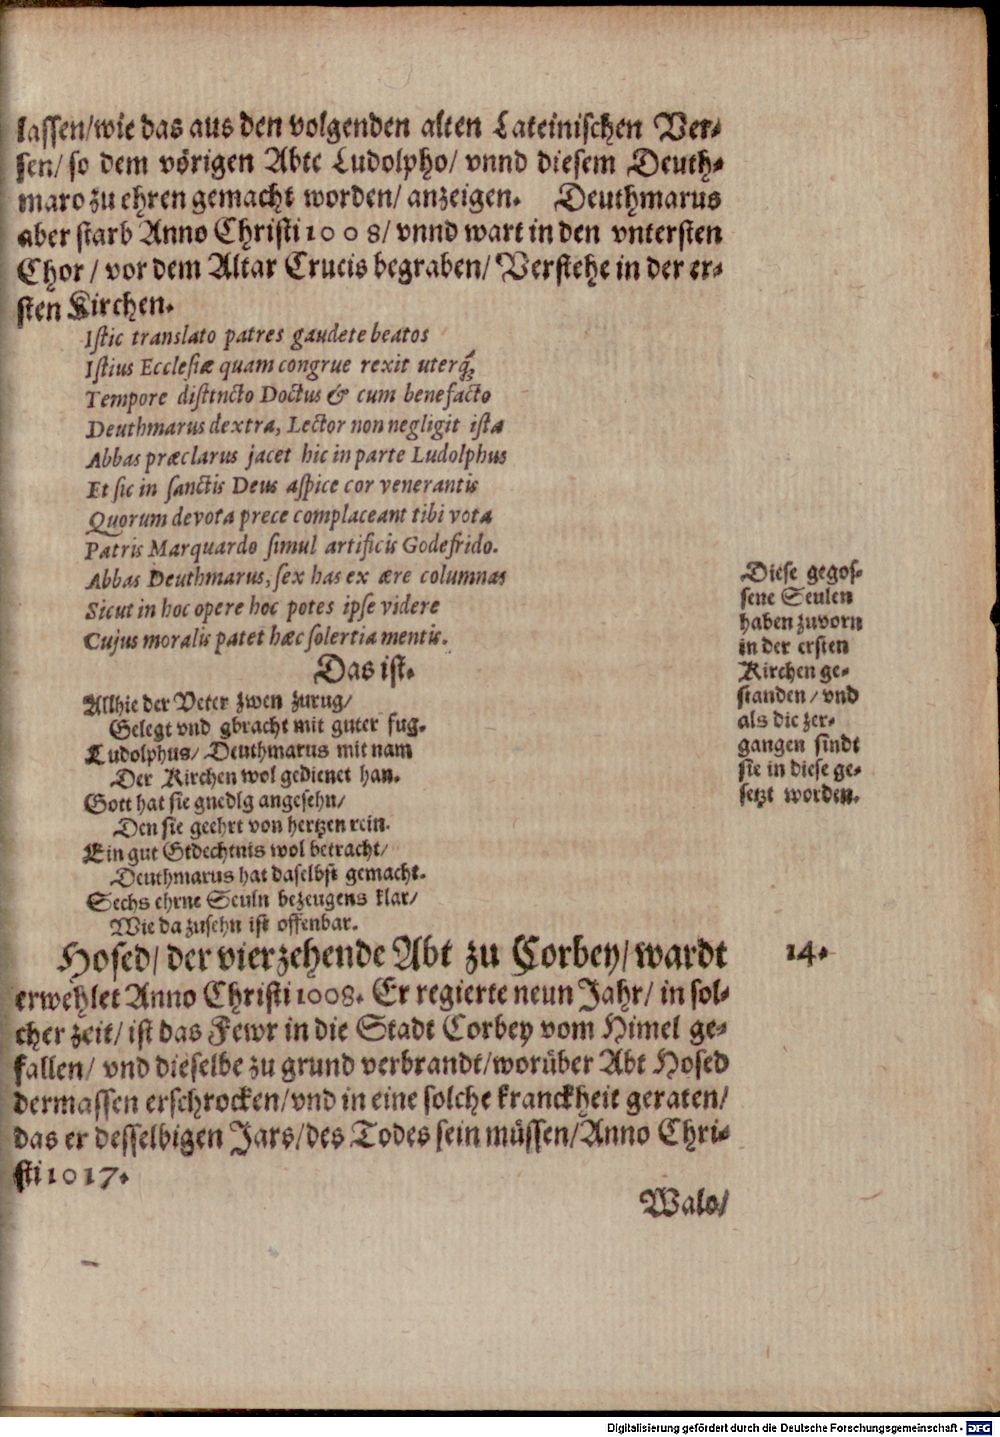 lassen/wie das aus den volgenden alten Lateinischen Ver-
sen/ so dem vörigen Abte Ludolpho/ vnnd diesem Deuth-
maro zu ehren gemacht worden/ anzeigen. Deuthmarus
aber starb Anno Christi 1008/ vnnd wart in den vntersten
Chor / vor dem Altar Crucis begraben/ Verstehe in der er-
sten Kirchen.
Istic translato patres gaudete beatos
Istius Ecclesiæ quam congrue rexit uterq́;
Tempore distincto Doctus & cum benefacto
Deuthmarus dextra, Lector non negligit ista
Abbas præclarus jacet hic in parte Ludolphus
Et sic in sanctis Deus aspice cor venerantis
Quorum devota prece complaceant tibi vota
Patris Marquardo simul artificis Godefrido.
Abbas Deuthmarus, sex has ex ære columnas
Sicut in hoc opere hoc potes ipse videre
Cujus moralis patet hæc solertia mentis.
Diese gegos-
sene Seulen
haben zuvorn
in der ersten
Kirchen ge-
standen / vnd
als die zer-
gangen sindt
sie in diese ge-
setzt worden.
Das ist.
Allhie der Veter zwen zurug/
Gelegt vnd gbracht mit guter fug.
Ludolphus/ Deuthmarus mit nam
Der Kirchen wol gedienet han.
Gott hat sie gnedlg angesehn/
Den sie geehrt von hertzen rein.
Ein gut Gedechtnis wol betracht/
Deuthmarus hat daselbst gemacht.
Sechs ehrne Seuln bezeugens klar/
Wie da zusehn ist offenbar.
Hosed/ der vierzehende Abt zu Corbey/ wardt
14.
erwehlet Anno Christi 1008. Er regierte neun Jahr/ in sol-
cher zeit/ ist das Fewr in die Stadt Corbey vom Himel ge-
fallen/ vnd dieselbe zu grund verbrandt/worüber Abt Hosed
dermassen erschrocken/vnd in eine solche kranckheit geraten/
das er desselbigen Jars/des Todes sein müssen/Anno Chri-
sti 1017.
Walo/
Digitalisierung gefördert durch die Deutsche Forschungsgemeinschaft - DFG